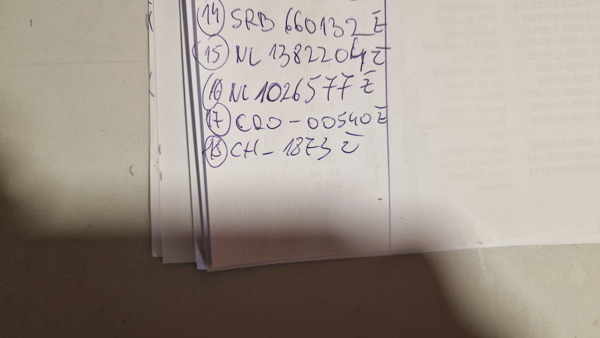 14 SRB 660132 Ž
15 NL 1382204 Ž
16 NL 1026577 Ž
17 CRO - 00540 Ž
18 CH - 1873 Ž